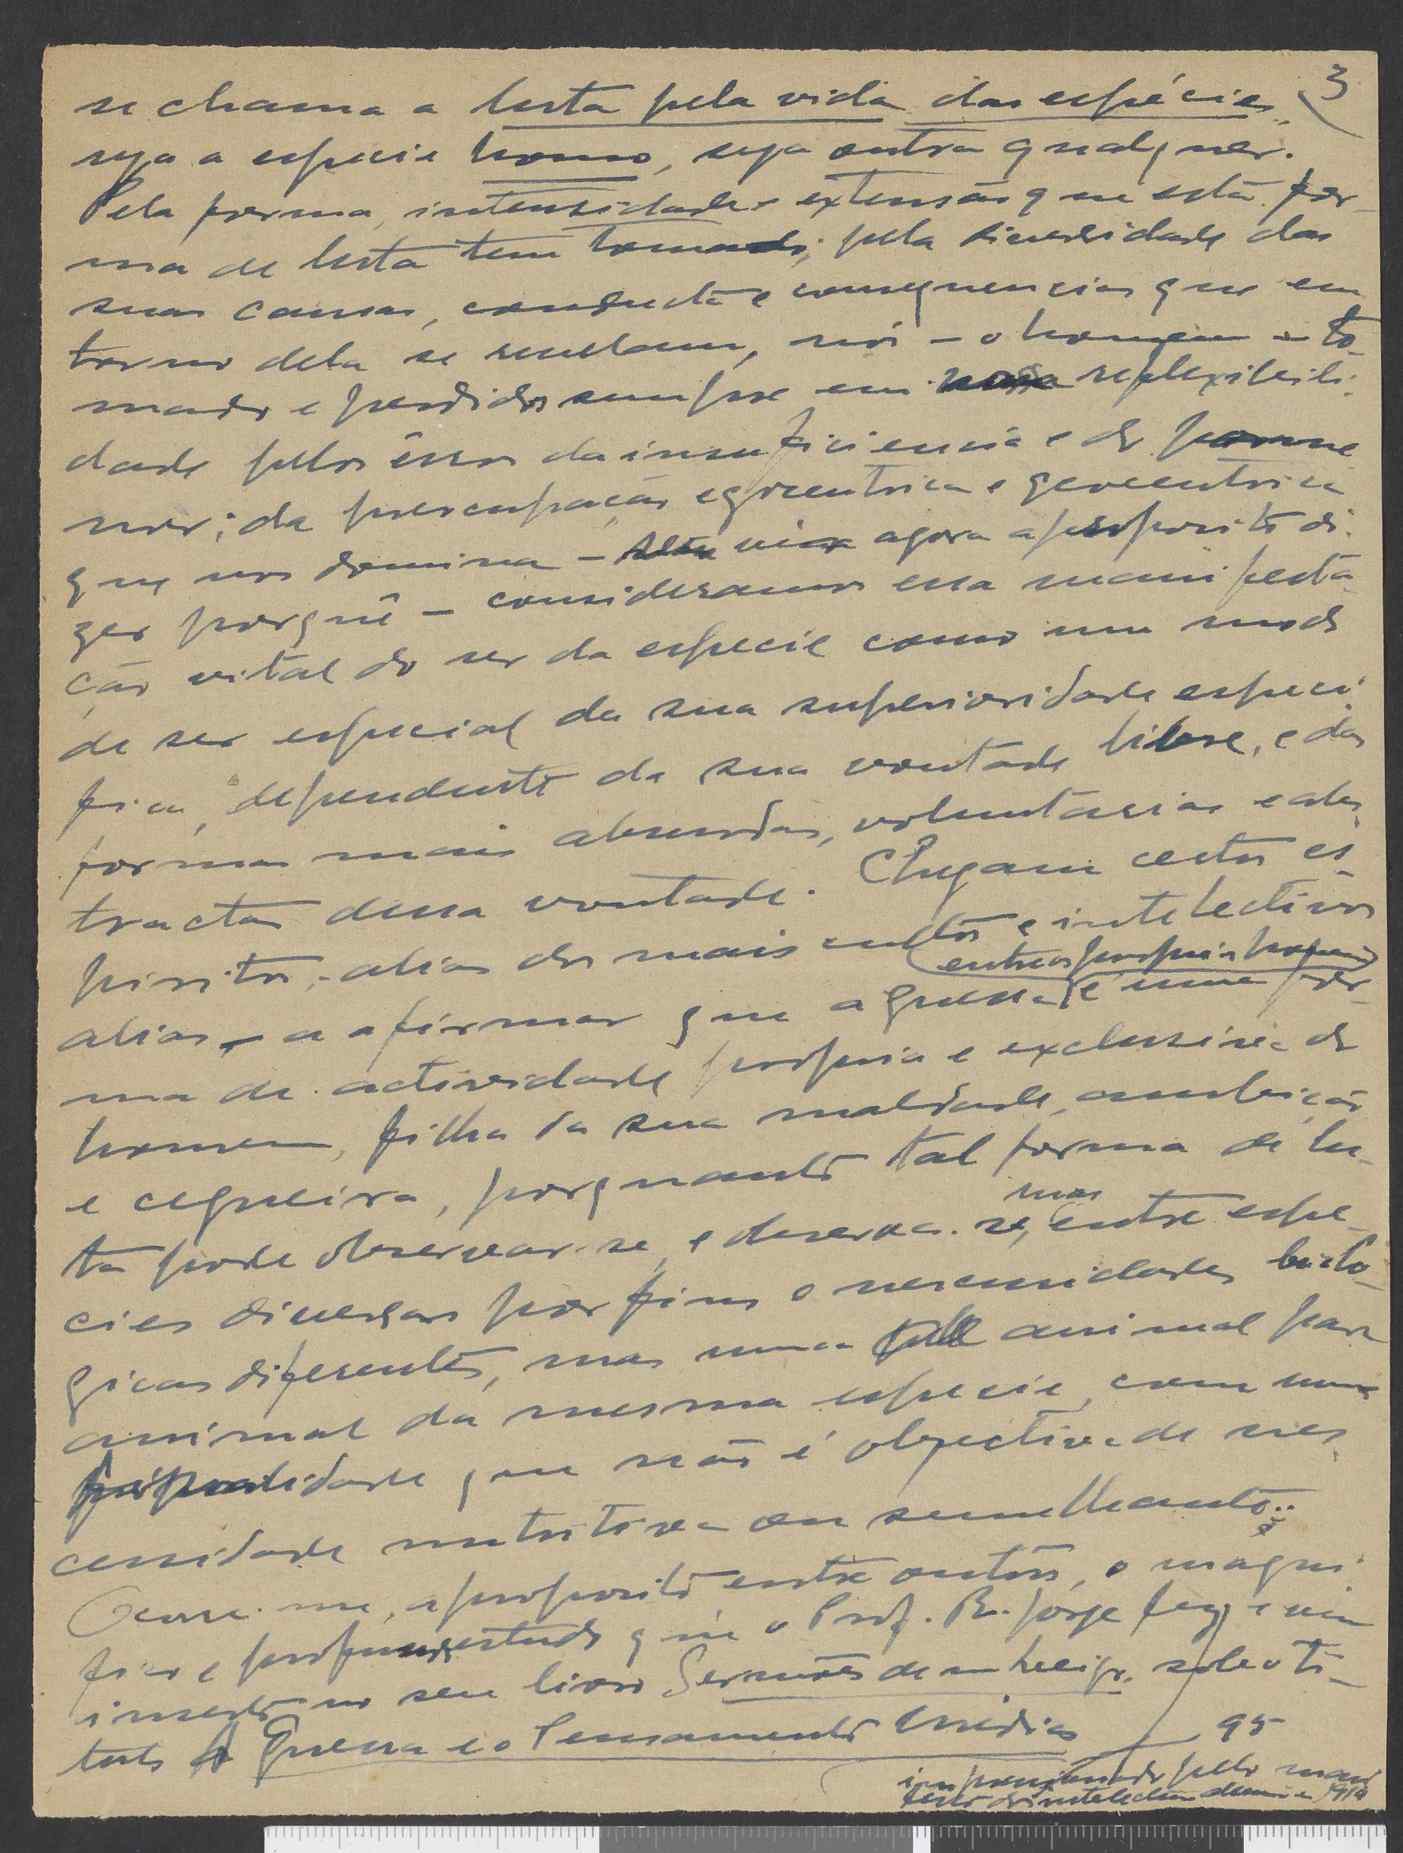 3
se chama a luta pela vida das espécies,
seja a especie homo, seja outra qualquer.
Pela forma, intensidade e extensão que esta for-
ma de luta tem tomado; pela diversidade das
suas causas, conducta e consequencias que em
torno dela se revelam, nós - o homem - to-
mado e perdido sempre em reflexibili-
dade pelos érros da insuficiencia e do
; da preocupação egocentrica e geocentrica
que nos domina - agora a proposito di-
zer porquê - consideramos essa manifesta-
ção vital do ser da especie como um modo
de ser especial da sua superioridade especi-
fica, dependente da sua vontade livre, e das
formas mais absurdas, voluntarias e abs-
tractas dessa vontade. Chegam certos es-
piritos, - alias dos mais cultos e intelectivos
entre os proprios homens
alias - a afirmar que a guerra é uma for-
ma de actividade propria e exclusiva do
homem, filha da sua maldade, ambição
e cegueira, porquanto tal forma de lu-
mas
ta pode observar-se, e observa-se, entre espe-
cies diversas por fins o necessidades biolo-
gicas diferentes, mas nunca animal para
animal da mesma especie, com uma
finalidade que não é objectiva de nes-
cessidade nutritiva ou semelhante.
Ocorre-me, a proposito, entre outros, o magni-
fico e profundo estudo que o Prof. R. Jorge fez e vem
inserto no seu livro Sermões de um Leigo, sob o ti-
tulo A Guerra e o Pensamento Médico 95
impressionado pelo mani
festo dos intelectuaes 1914